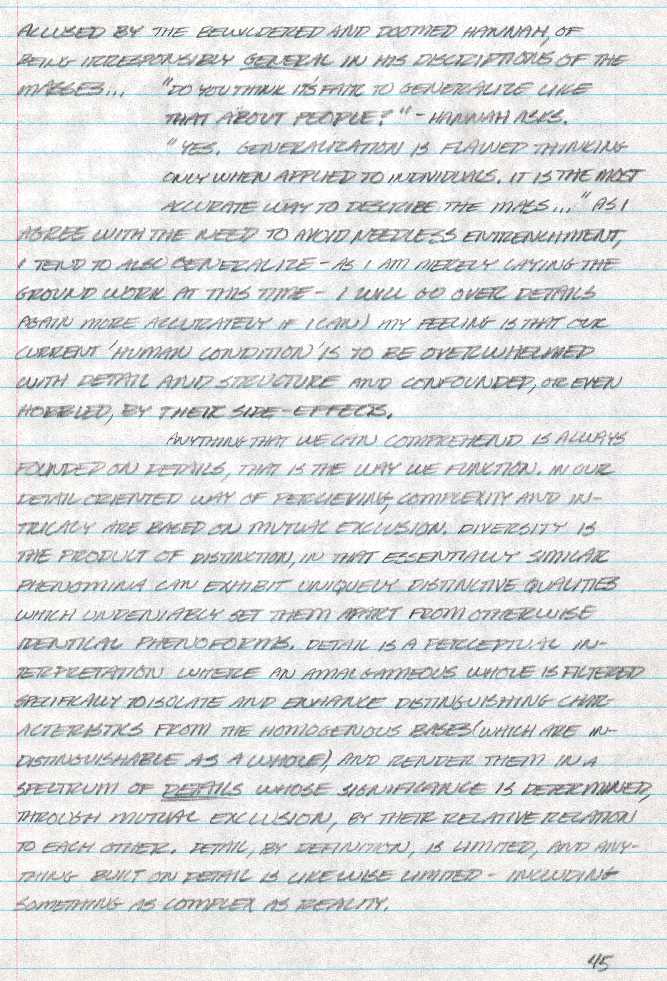 ACCUSED BY THE BEWILDERED AND DOOMED HANNAH, OF
BEING IRRESPONSIBLY GENERAL IN HIS DISCRIPTIONS OF THE
MASSES... "DO YOU THINK IT'S FAIR TO GENERALIZE LIKE
THAT ABOUT PEOPLE?" - HANNAH ASKS.
"YES. GENERALIZATION IS FLAWED THINKING
ONLY WHEN APPLIED TO INDIVIDUALS. IT IS THE MOST
ACCURATE WAY TO DESCRIBE THE MASS..." AS I
AGREE WITH THE NEED TO AVOID NEEDLESS ENTRENCHMENT,
I TEND TO ALSO GENERALIZE - AS I AM MERELY LAYING THE
GROUND WORK AT THIS TIME - I WILL GO OVER DETAILS
AGAIN MORE ACCURATELY IF I CAN) MY FEELING IS THAT OUR
CURRENT 'HUMAN CONDITION' IS TO BE OVERWHELMED
WITH DETAIL AND STRUCTURE AND CONFOUNDED, OR EVEN
HOBBLED, BY THEIR SIDE-EFFECTS.
ANYTHING THAT WE CAN COMPREHEND IS ALWAYS
FOUNDED ON DETAILS, THAT IS THE WAY WE FUNCTION. IN OUR
DETAIL ORIENTED WAY OF PERCIEVING, COMPLEXITY AND IN-
TRICACY ARE BASED ON MUTUAL EXCLUSION. DIVERSITY IS
THE PRODUCT OF DISTINCTION, IN THAT ESSENTIALLY SIMILAR
PHENOMINA CAN EXHIBIT UNIQUELY DISTINCTIVE QUALITIES
WHICH UNDENIABLY SET THEM APART FROM OTHERWISE
IDENTICAL PHENOFORMS. DETAIL IS A PERCEPTUAL IN-
TERPRETATION WHERE AN AMALGAMEOUS WHOLE IS FILTERED
SPECIFICALLY TO ISOLATE AND ENHANCE DISTINGUISHING CHAR-
ACTERISTICS FROM THE HOMOGENOUS BASES (WHICH ARE IN-
DISTINGUISHABLE AS A WHOLE), AND RENDER THEM IN A
SPECTRUM OF DETAILS WHOSE SIGNIFICANCE IS DETERMINED,
THROUGH MUTUAL EXCLUSION, BY THEIR RELATIVE RELATION
TO EACH OTHER. DETAIL, BY DEFINITION, IS LIMITED, AND ANY-
THING BUILT ON DETAIL IS LIKEWISE LIMITED - INCLUDING
SOMETHING AS COMPLEX AS REALITY.
45